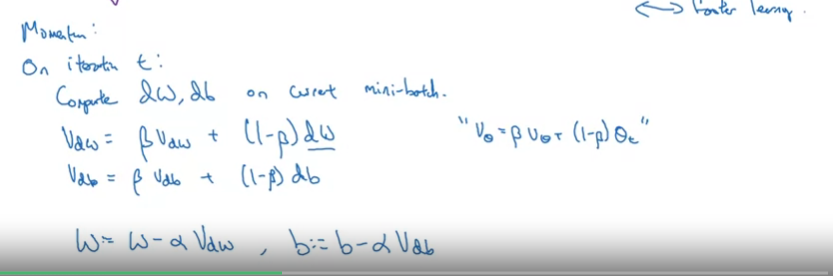 ⟷ faster learning.
Momentum:
On iteration t:
Compute dW, db on current mini-batch.
V_dw = β V_dw + (1-β) dW
"V_θ = β V_θ + (1-β) θ_t"
V_db = β V_db + (1-β) db
W = W - α V_dw , b := b - α V_db